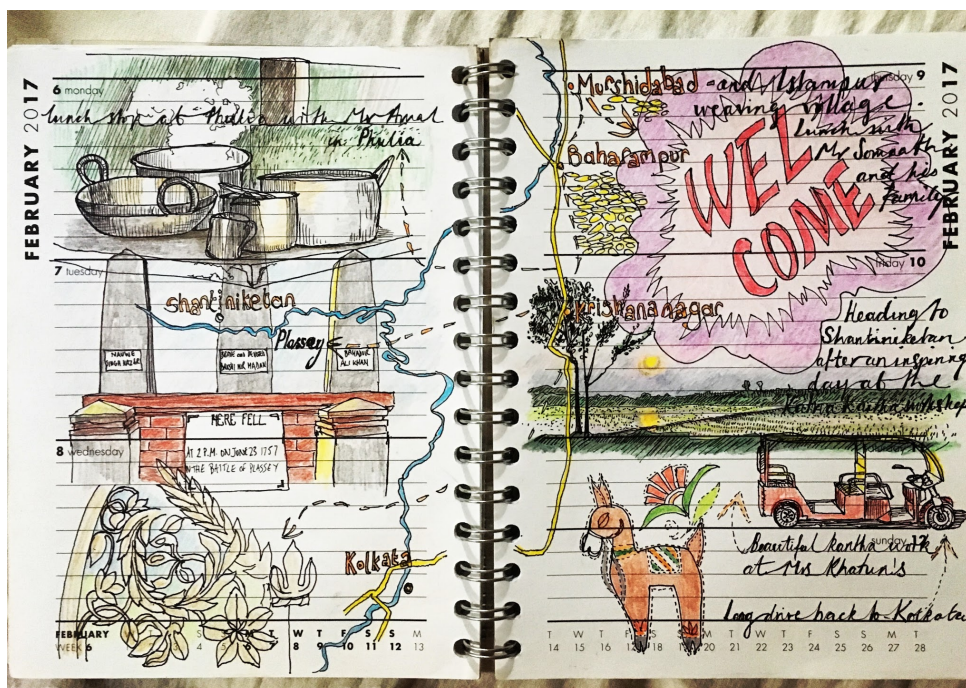 FEBRUARY 2017
6 monday
lunch stop at Phulia with Mr Amal
in Phulia
7 tuesday
Shantiniketan
Plassey
NAUWE
SINGH HAZARI
BAKSHI MIR MADAN
BAHADUR
ALI KHAN
HERE FELL
AT 2 P.M. ON JUNE 23 1757
IN THE BATTLE OF PLASSEY
8 wednesday
Kolkata
FEBRUARY
WEEK 6
W T F S S M
8 9 10 11 12 13
FEBRUARY 2017
thursday 9
Murshidabad and Islampur
weaving village.
lunch with
Mr Somnath
and his
family
Baharampur
WEL
COME
friday 10
Krishnanagar
Heading to
Shantiniketan
after an inspiring
day at the
Katna Kantha workshop
sunday 12
Beautiful kantha work
at Mrs Khatun's
Long drive back to Kolkata
T W T F S S M T W T F S S M T
14 15 16 17 18 19 20 21 22 23 24 25 26 27 28